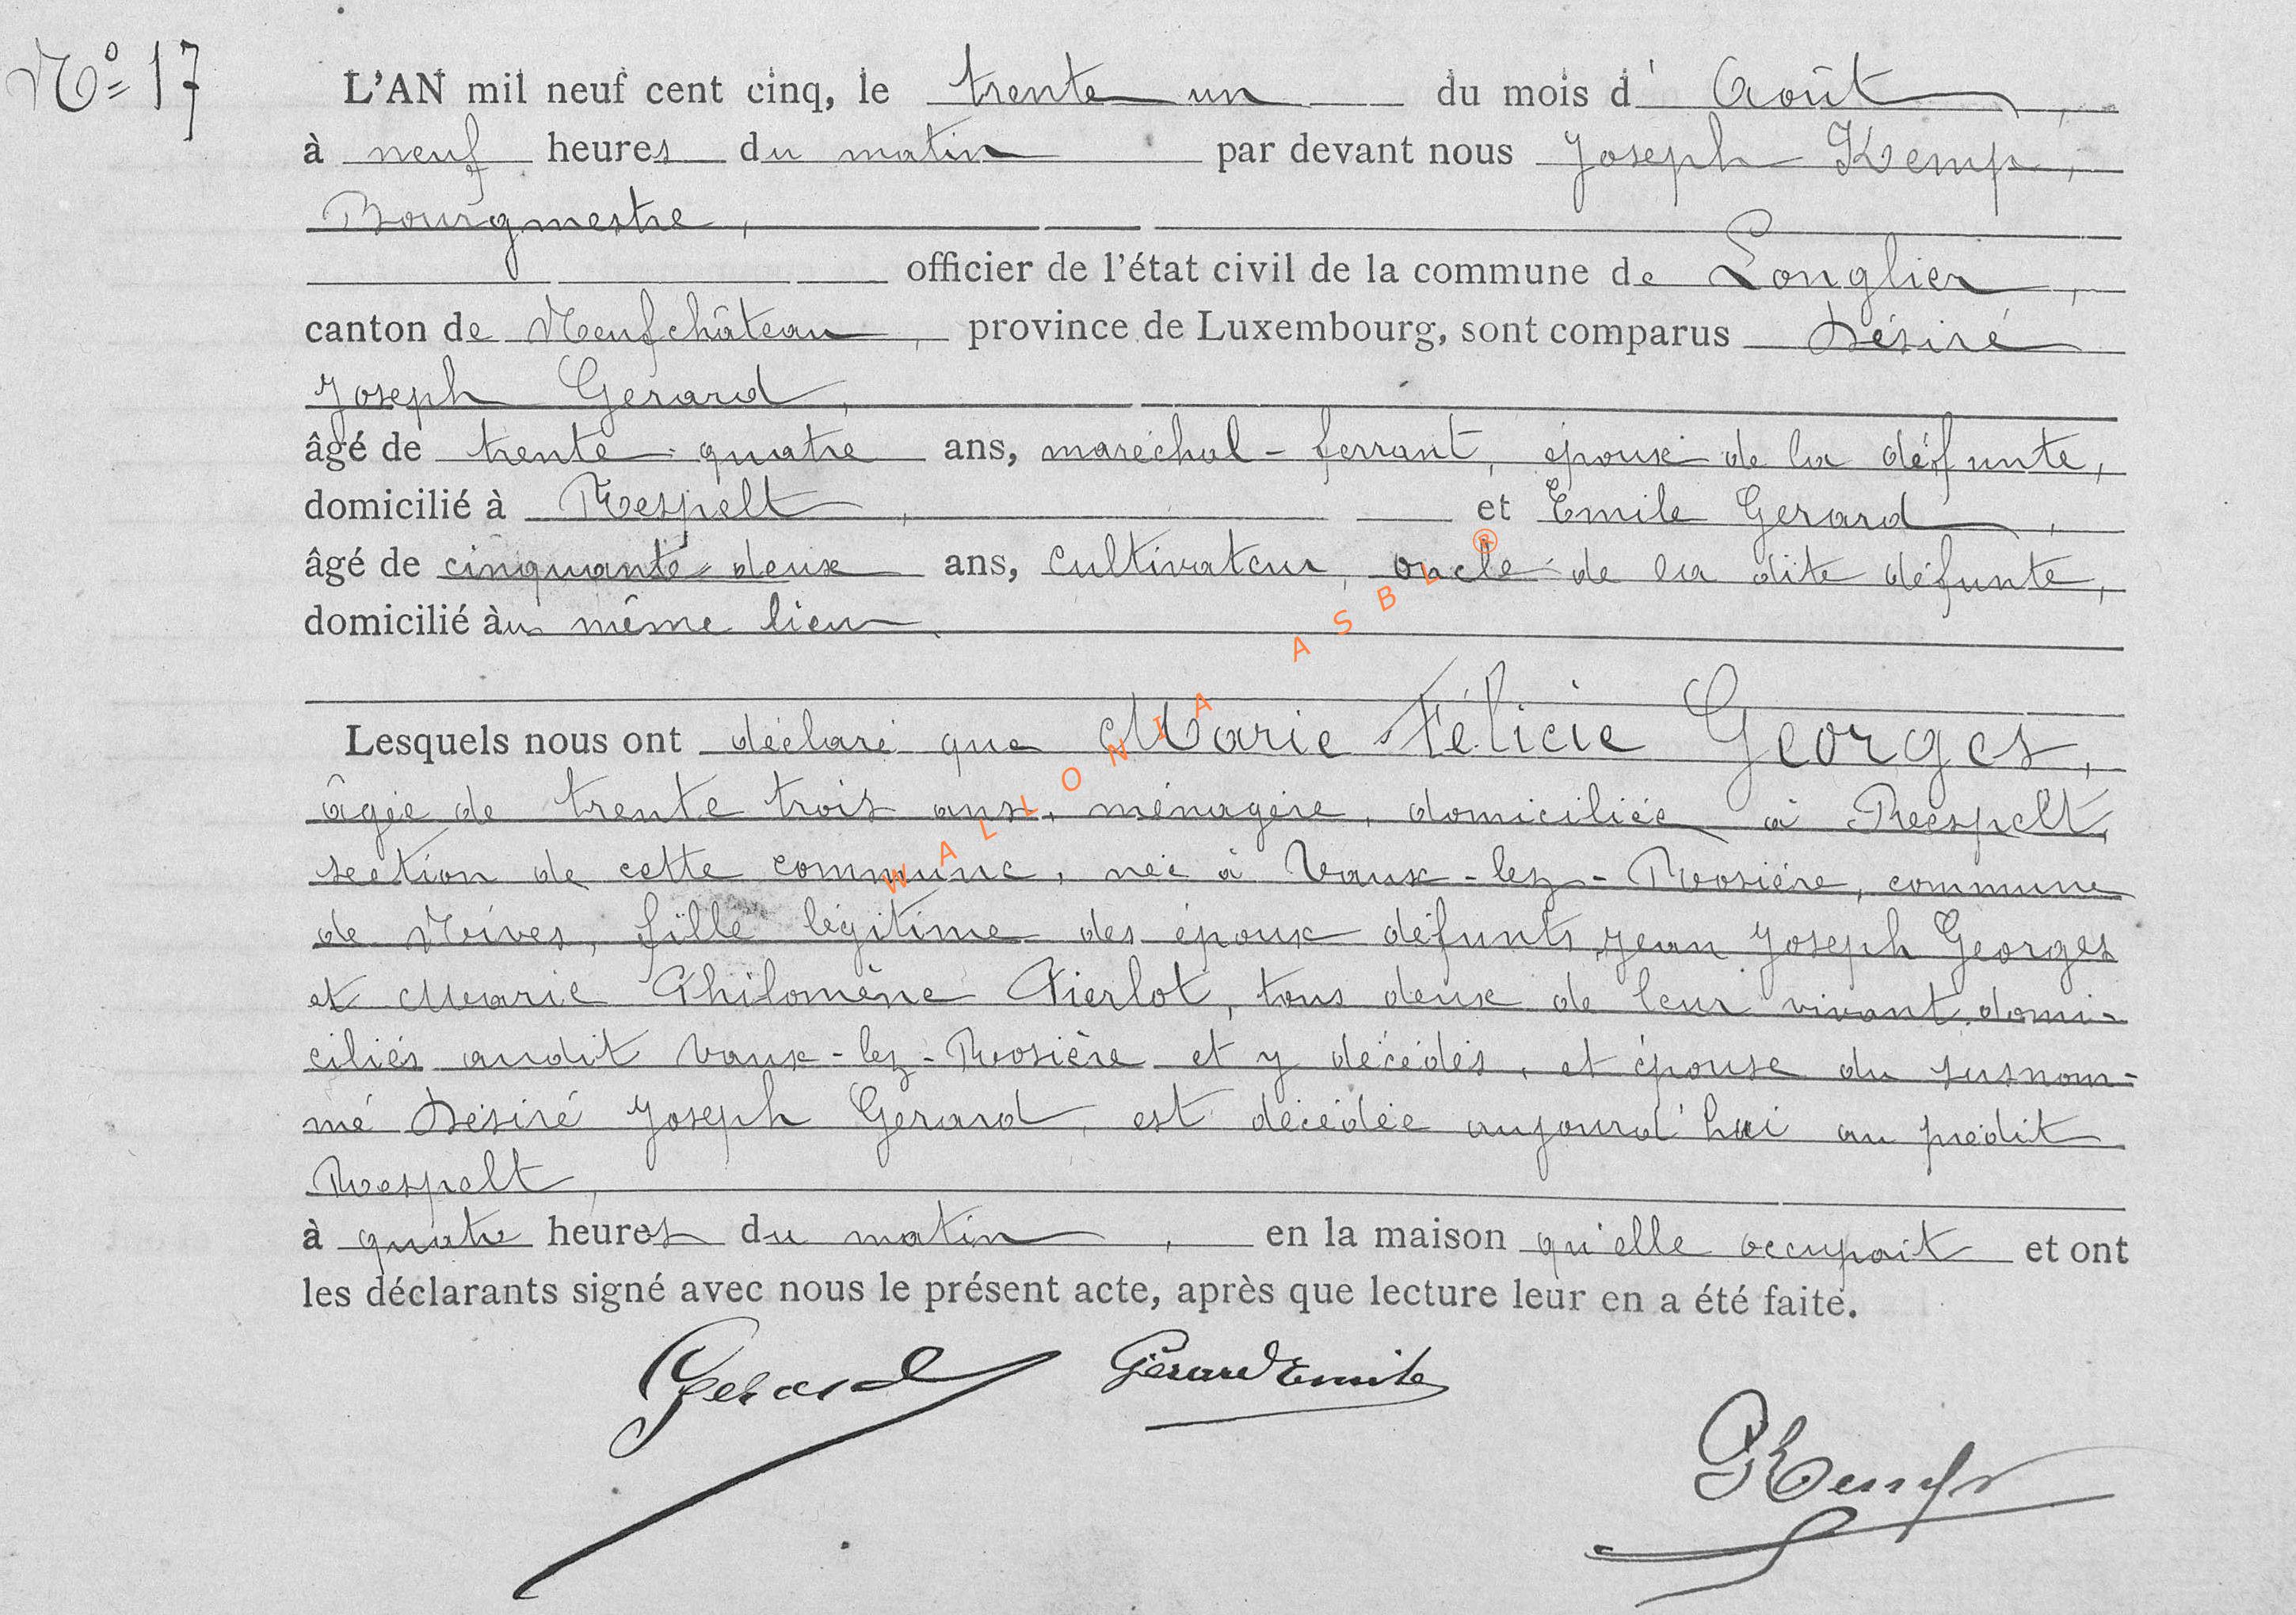 N° 17
L'AN mil neuf cent cinq, le trente un du mois d' Août,
à neuf heures du matin par devant nous Joseph Kemp,
Bourgmestre,
officier de l'état civil de la commune de Longlier,
canton de Neufchâteau, province de Luxembourg, sont comparus Désiré
Joseph Gerard,
âgé de trente-quatre ans, maréchal-ferrant, époux de la défunte,
domicilié à Respelt, et Emile Gerard,
âgé de cinquante-deux ans, cultivateur, oncle de la dite défunte,
domicilié àu même lieu.
Lesquels nous ont déclaré que Marie Félicie Georges,
âgée de trente trois ans, ménagère, domiciliée à Respelt,
section de cette commune, née à Vaux-lez-Rosière, commune
de Nives, fille légitime des époux défunts Jean Joseph Georges
et Marie Philomène Pierlot, tous deux de leur vivant domi-
ciliés audit Vaux-lez-Rosière et y décédés, et épouse du susnom-
mé Désiré Joseph Gerard, est décédée aujourd'hui au prédit
Respelt,
à quatre heures du matin, en la maison qu'elle occupait et ont
les déclarants signé avec nous le présent acte, après que lecture leur en a été faite.
Gerard Gérard Emile
JKemp
WALLONIA ASBL ®